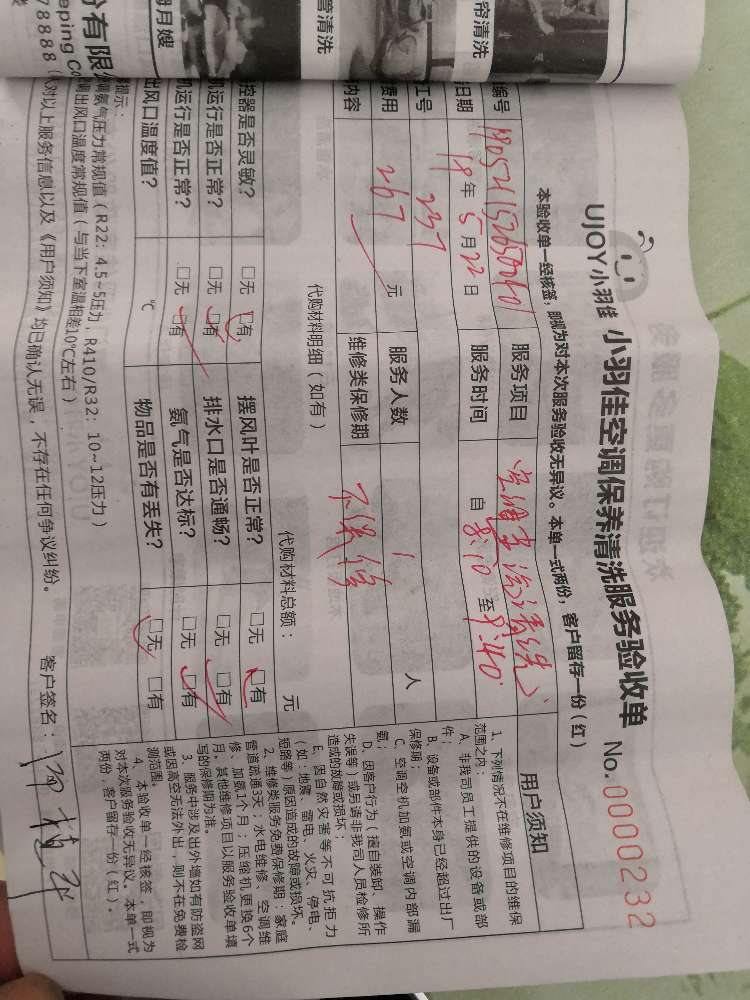 份有限
eping Co
78888
月嫂
管清洗
帘清洗
UJOY小羽佳 小羽佳空调保养清洗服务验收单 No.0000232
本验收单一经核签，即视为对本次服务验收无异议。本单一式两份，客户留存一份（红）
编号 服务项目
日期 19年5月22日 服务时间 自 至9:40
工号 237 服务人数 1人
费用 267元 维修类保修期 不保修
内容
代购材料明细（如有） 代购材料总额： 元
控器是否灵敏？ □无 □有 摆风叶是否正常？ □无 □有
机运行是否正常？ □无 □有 排水口是否通畅？ □无 □有
机运行是否正常？ □无 □有 氨气是否达标？ □无 □有
出风口温度值？ ℃ 物品是否有丢失？ □无 □有
提示：
调氨气压力常规值（R22：4.5~5压力，R410/R32：10~12压力）
调出风口温度常规值（与当下室温相差10℃左右）
对以上服务信息以及《用户须知》均已确认无误，不存在任何争议纠纷。 客户签名：
用户须知
1、下列情况不在维修项目的维保
范围之内：
A、非我司员工提供的设备或部
件；
B、设备或部件本身已经超过出厂
保修期；
C、空调空机加氨或空调内部漏
氨；
D、因客户行为（擅自装卸、操作
失误等）或另请非我司人员检修所
造成的故障或损坏；
E、因自然灾害等不可抗拒力
（如：地震、雷电、火灾、停电、
短路等）原因造成的故障或损坏。
2、维修类服务免费保修期：家庭
管道疏通3天；水电维修、空调维
修、加氨1个月；压缩机更换6个
月。其他维修项目以服务验收单填
写的保修期为准。
3、服务中涉及出外墙如有防盗网
或因高空无法外出，则不在免费检
测范围。
4、本验收单一经核签，即视为
对本次服务验收无异议。本单一式
两份，客户留存一份（红）。